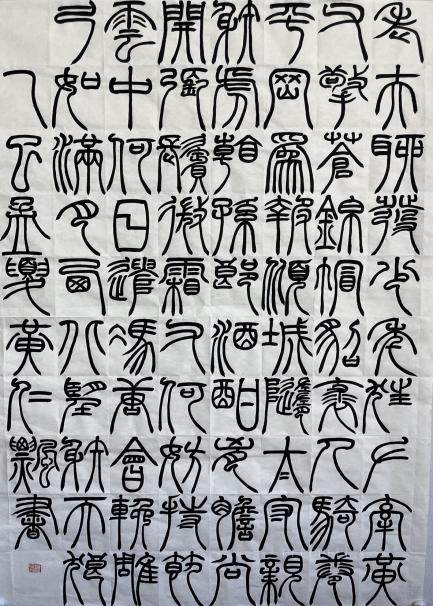 老夫聊發少年狂左牽黃
右擎蒼錦帽貂裘千騎卷
平岡爲報傾城隨太守親
射虎看孫郎酒酣胸膽尚
開張鬢微霜又何妨持節
雲中何日遣馮唐會挽雕
弓如滿月西北望射天狼
乙巳孟夏黃仁飄書